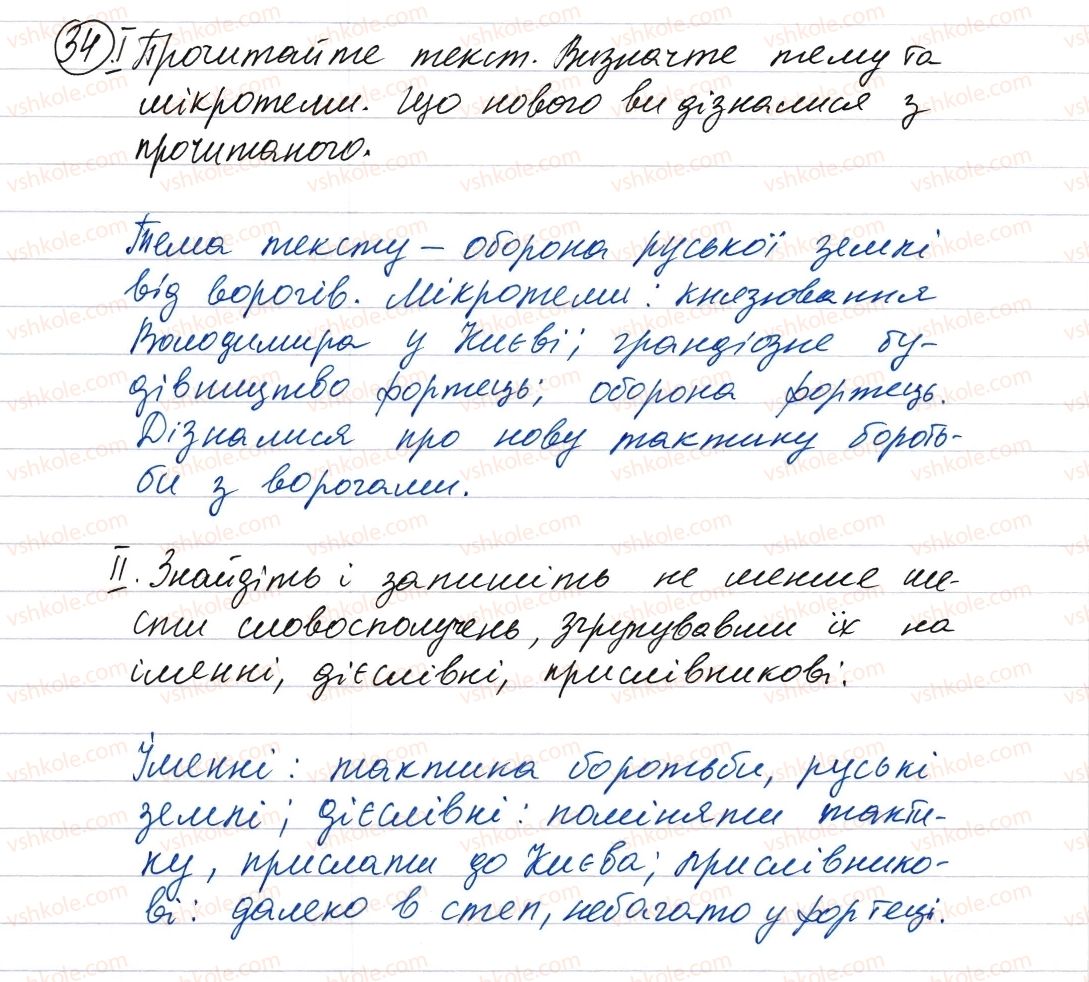 34 I Прочитайте текст. Визначте тему та
мікротеми. Що нового ви дізналися з
прочитаного.
Тема тексту – оборона руської землі
від ворогів. Мікротеми: князювання
Володимира у Києві; грандіозне бу-
дівництво фортець; оборона фортець.
Дізналися про нову тактику бороть-
би з ворогами.
II. Знайдіть і запишіть не менше ше-
сти словосполучень, згрупувавши їх на
іменні, дієслівні, прислівникові.
Іменні: тактика боротьби, руські
землі; дієслівні: поміняти такти-
ку, прислати до Києва; прислівнико-
ві: далеко в степ, небагато у фортеці.